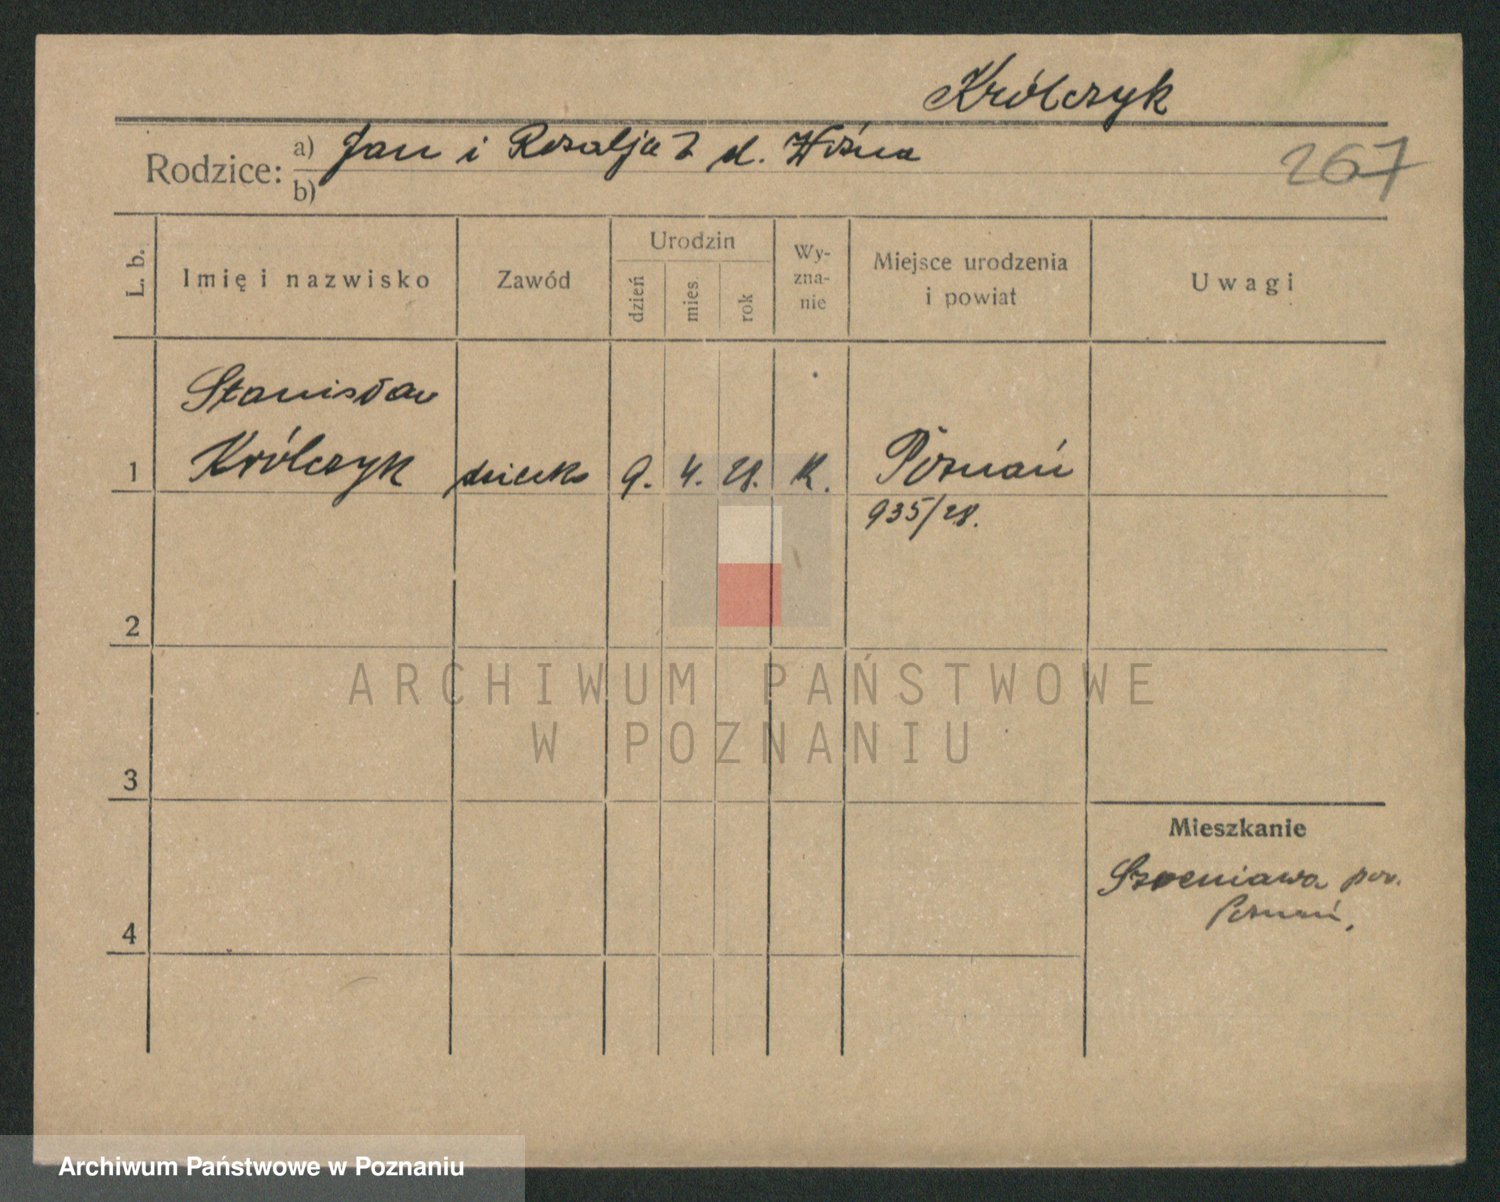 Królczyk
Rodzice: a) Jan i Rozalja z d. Wózna
b)
267
L. b.
Imię i nazwisko
Zawód
Urodzin
dzień
mies.
rok
Wy-
zna-
nie
Miejsce urodzenia
i powiat
Uwagi
Stanisław
1 Królczyk dziecko 9. 4. 28. K. Poznań
935/28.
2
3
4
Mieszkanie
pow.
Poznań.
ARCHIWUM PAŃSTWOWE
W POZNANIU
Archiwum Państwowe w Poznaniu